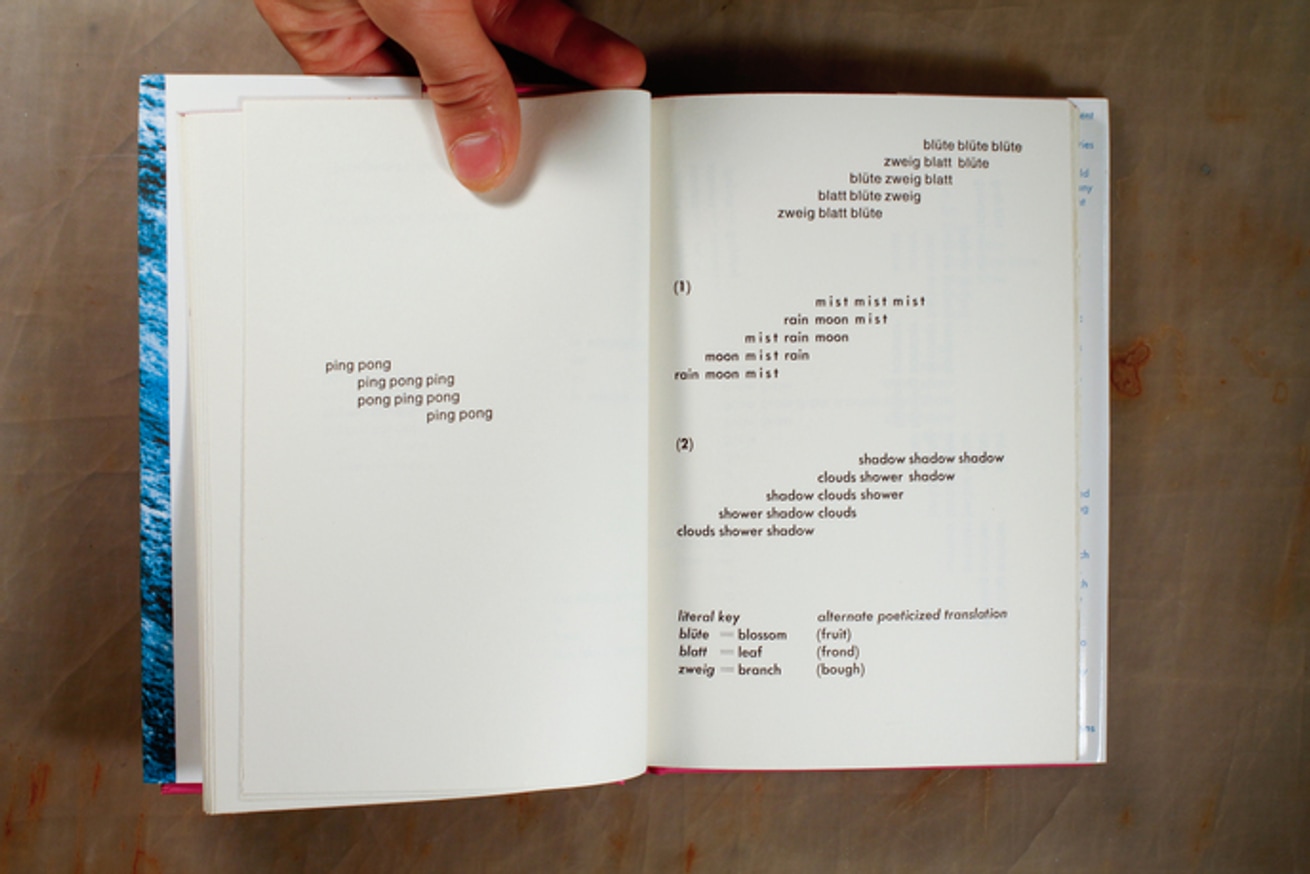 ping pong
ping pong ping
pong ping pong
ping pong
blüte blüte blüte
zweig blatt blüte
blüte zweig blatt
blatt blüte zweig
zweig blatt blüte
(1)
mist mist mist
rain moon mist
mist rain moon
moon mist rain
rain moon mist
(2)
shadow shadow shadow
clouds shower shadow
shadow clouds shower
shower shadow clouds
clouds shower shadow
literal key alternate poeticized translation
blüte = blossom (fruit)
blatt = leaf (frond)
zweig = branch (bough)